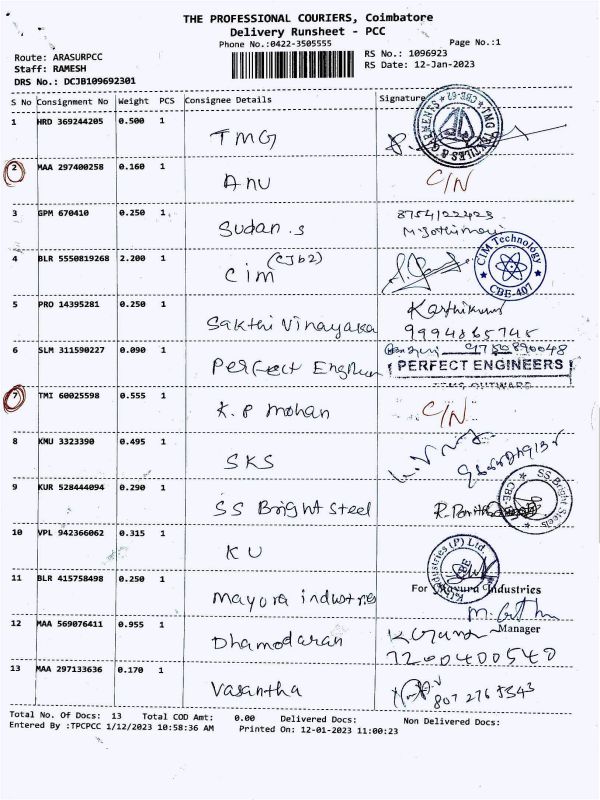 THE PROFESSIONAL COURIERS, Coimbatore
Delivery Runsheet - PCC
Phone No.:0422-3505555
Page No.:1
Route: ARASURPCC
RS No.: 1096923
Staff: RAMESH
RS Date: 12-Jan-2023
DRS No.: DCJB109692301
S No Consignment No Weight PCS Consignee Details Signature
1 HRD 369244205 0.500 1 TMG
TMG TEXTILES & GARMENTS CBE-62
2 MAA 297400258 0.160 1 Anu C/N
3 GPM 670410 0.250 1 Sudan.s 8754122423
M. Jothimani
4 BLR 5550819268 2.200 1 Cim (CJb2)
CIM Technology CBE-407
5 PRO 14395281 0.250 1 Sakthi Vinayaka Karthikumar
9994865745
6 SLM 311590227 0.090 1 Perfect Engineer 9750890048
PERFECT ENGINEERS
7 TMI 60025598 0.555 1 K.P mohan C/N
8 KMU 3323390 0.495 1 SKS
9 KUR 528444094 0.290 1 SS Bright Steel
SS Bright Steels CBE
10 VPL 942366062 0.315 1 KU
Industries (P) Ltd. CBE
11 BLR 415758498 0.250 1 Mayora industries For Mayura Industries
Manager
12 MAA 569076411 0.955 1 Dhamodaran
7200400540
13 MAA 297133636 0.170 1 Vasantha 807 276 5543
Total No. Of Docs: 13 Total COD Amt: 0.00 Delivered Docs: Non Delivered Docs:
Entered By :TPCPCC 1/12/2023 10:58:36 AM Printed On: 12-01-2023 11:00:23